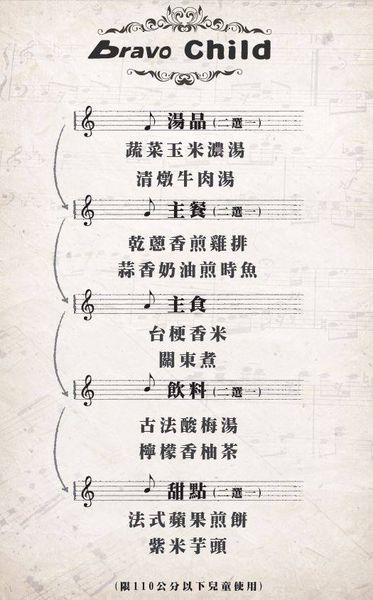 Bravo Child
湯品(二選一)
蔬菜玉米濃湯
清燉牛肉湯
主餐(二選一)
乾蔥香煎雞排
蒜香奶油煎時魚
主食
台梗香米
關東煮
飲料(二選一)
古法酸梅湯
檸檬香柚茶
甜點(二選一)
法式蘋果煎餅
紫米芋頭
(限110公分以下兒童使用)